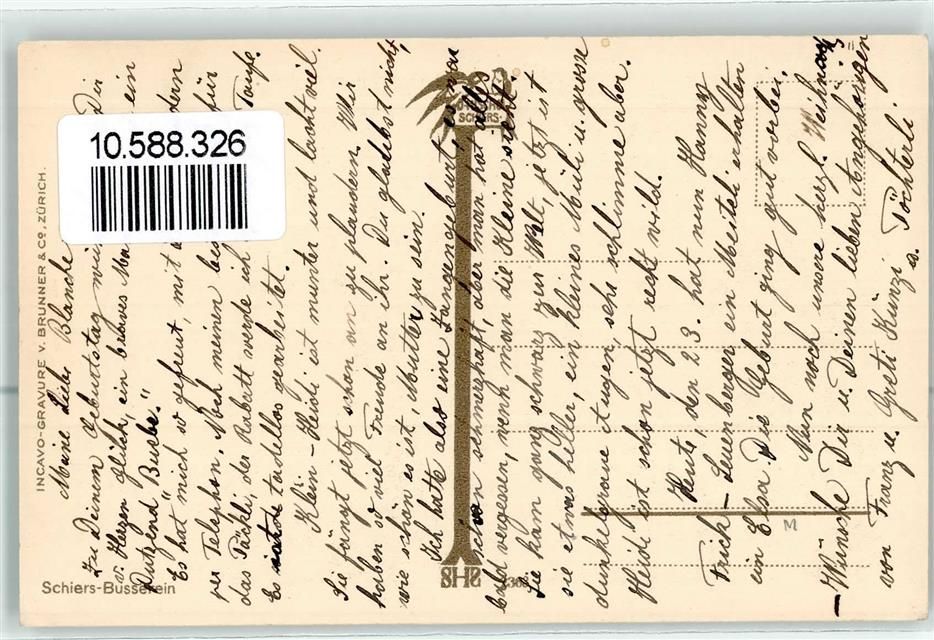 10.588.326
INCAVO-GRAVURE V. BRUNNER & Co. ZÜRICH.
Schiers-Busserein
SCHIERS
SHS
Meine liebe Blanche
Zu Deinem Geburtstag Dir
v. Herzen glück, ein braves ein
Dutzend "Buebe."
Es hat mich so gefreut, mit
per Telephon. Nebst meinen für
das Päckli, der Robert werde ich Taufe.
Es tadellos gearbeitet.
Klein-Heidi ist munter und lacht viel.
Sie fängt jetzt schon an zu plaudern. Wir
haben so viel Freude an ihr. Du glaubst nicht,
wie schön es ist, Mutter zu sein.
Ich hatte also eine Zangengeburt, es war
schon schmerzhaft, aber man hat alles
bald vergessen, wenn man die Kleine sieht.
Sie kam ganz schwarz zur Welt, jetzt ist
sie etwas heller, ein kleines Müli u. grosse
dunkelgraue Augen, sehr schlimme aber.
Heidi ist schon jetzt recht wild.
Heute, den 23. hat nun Hanny
Frick-Leuenberger ein Meiteli erhalten
ein Elsa. Die Geburt ging gut vorbei.
Nun noch unsere herzl. Weihnachts-
Wünsche Dir u. Deinen lieben Angehörigen
von Franz u. Greti Künzi u. Töchterli.
M